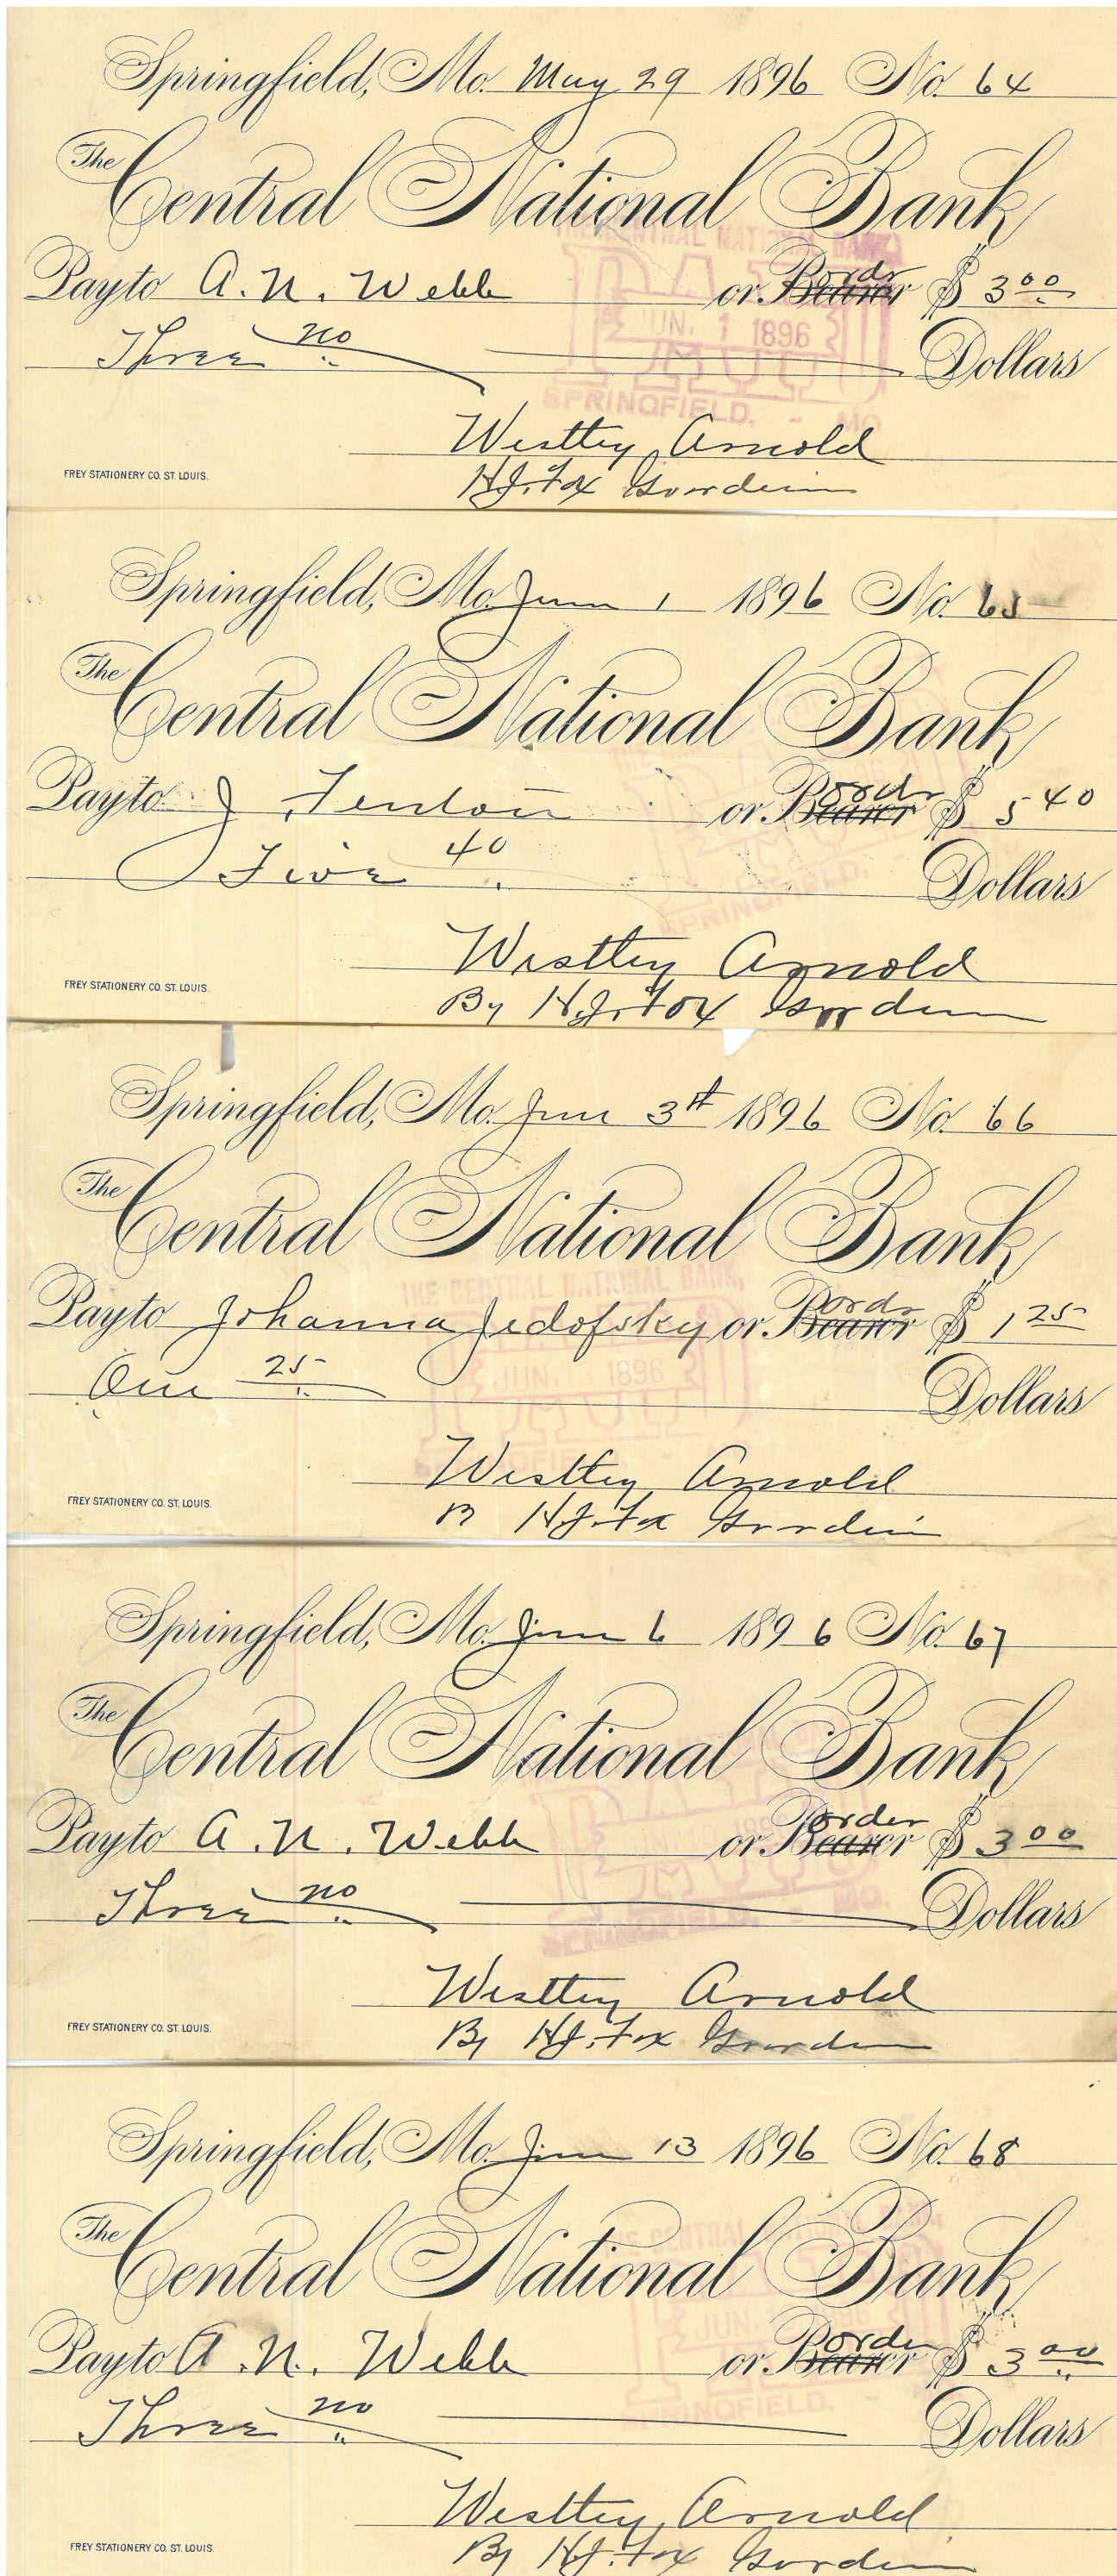 Springfield, Mo. May 29 1896 No. 64
The Central National Bank
THE CENTRAL NATIONAL BANK
Pay to A. N. Webb or Bearer ordr $ 3 00
PAID
JUN. 1 1896
Three no Dollars
SPRINGFIELD, - MO
Westley Arnold
H.J. Fox Guordein
FREY STATIONERY CO. ST. LOUIS.
Springfield, Mo. Jun 1 1896 No. 65
The Central National Bank
Pay to J. Fenton or Bearer ordr $ 5 40
Five 40 Dollars
SPRINGFIELD,
Westley Arnold
By H.J. Fox Guordein
FREY STATIONERY CO. ST. LOUIS.
Springfield, Mo. Jun 3rd 1896 No. 66
The Central National Bank
THE CENTRAL NATIONAL BANK,
Pay to Johanna Jedofsky or Bearer ordr $ 1 25
JUN. 1896
One 25 Dollars
SPRINGFIELD
Westley Arnold
B H.J. Fox Guordein
FREY STATIONERY CO. ST. LOUIS.
Springfield, Mo. Jun 6 1896 No. 67
The Central National Bank
Pay to A. N. Webb or Bearer order $ 3 00
Three no Dollars
Westley Arnold
By H.J. Fox Guordein
FREY STATIONERY CO. ST. LOUIS.
Springfield, Mo. Jun 13 1896 No. 68
The Central National Bank
THE CENTRAL
Pay to A. N. Webb or Bearer order $ 3 00
JUN. 1896
Three no Dollars
SPRINGFIELD,
Westley Arnold
By H.J. Fox Guordein
FREY STATIONERY CO. ST. LOUIS.